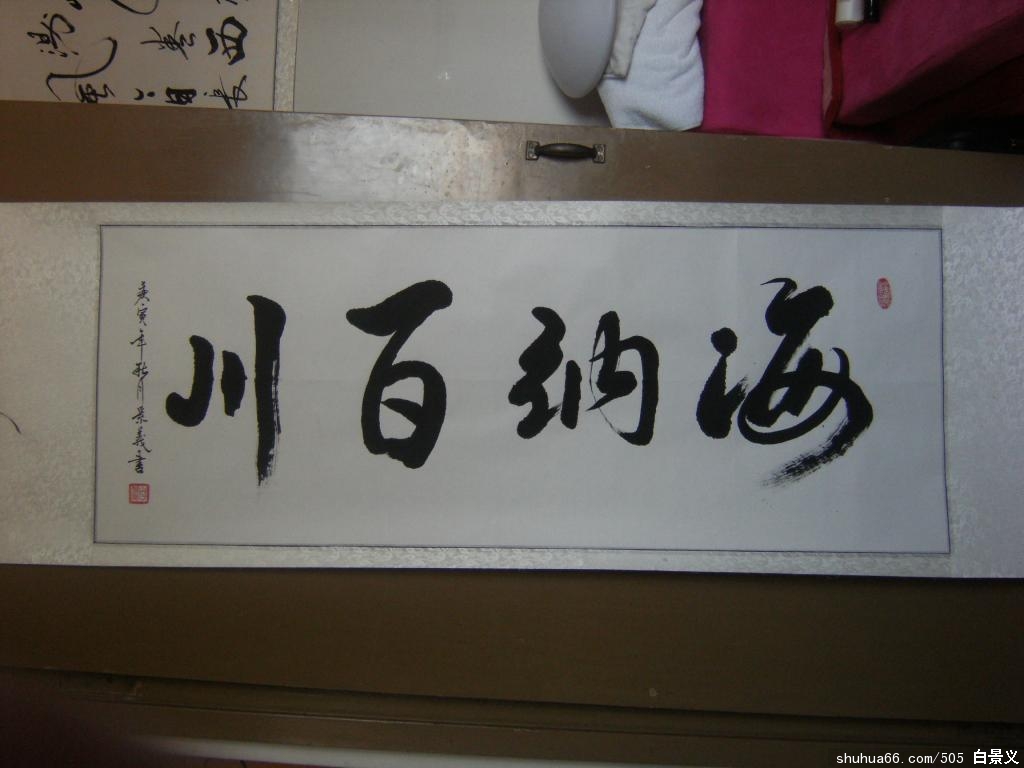 海納百川
庚寅年秋月景義書
shuhua66.com/505 白景义